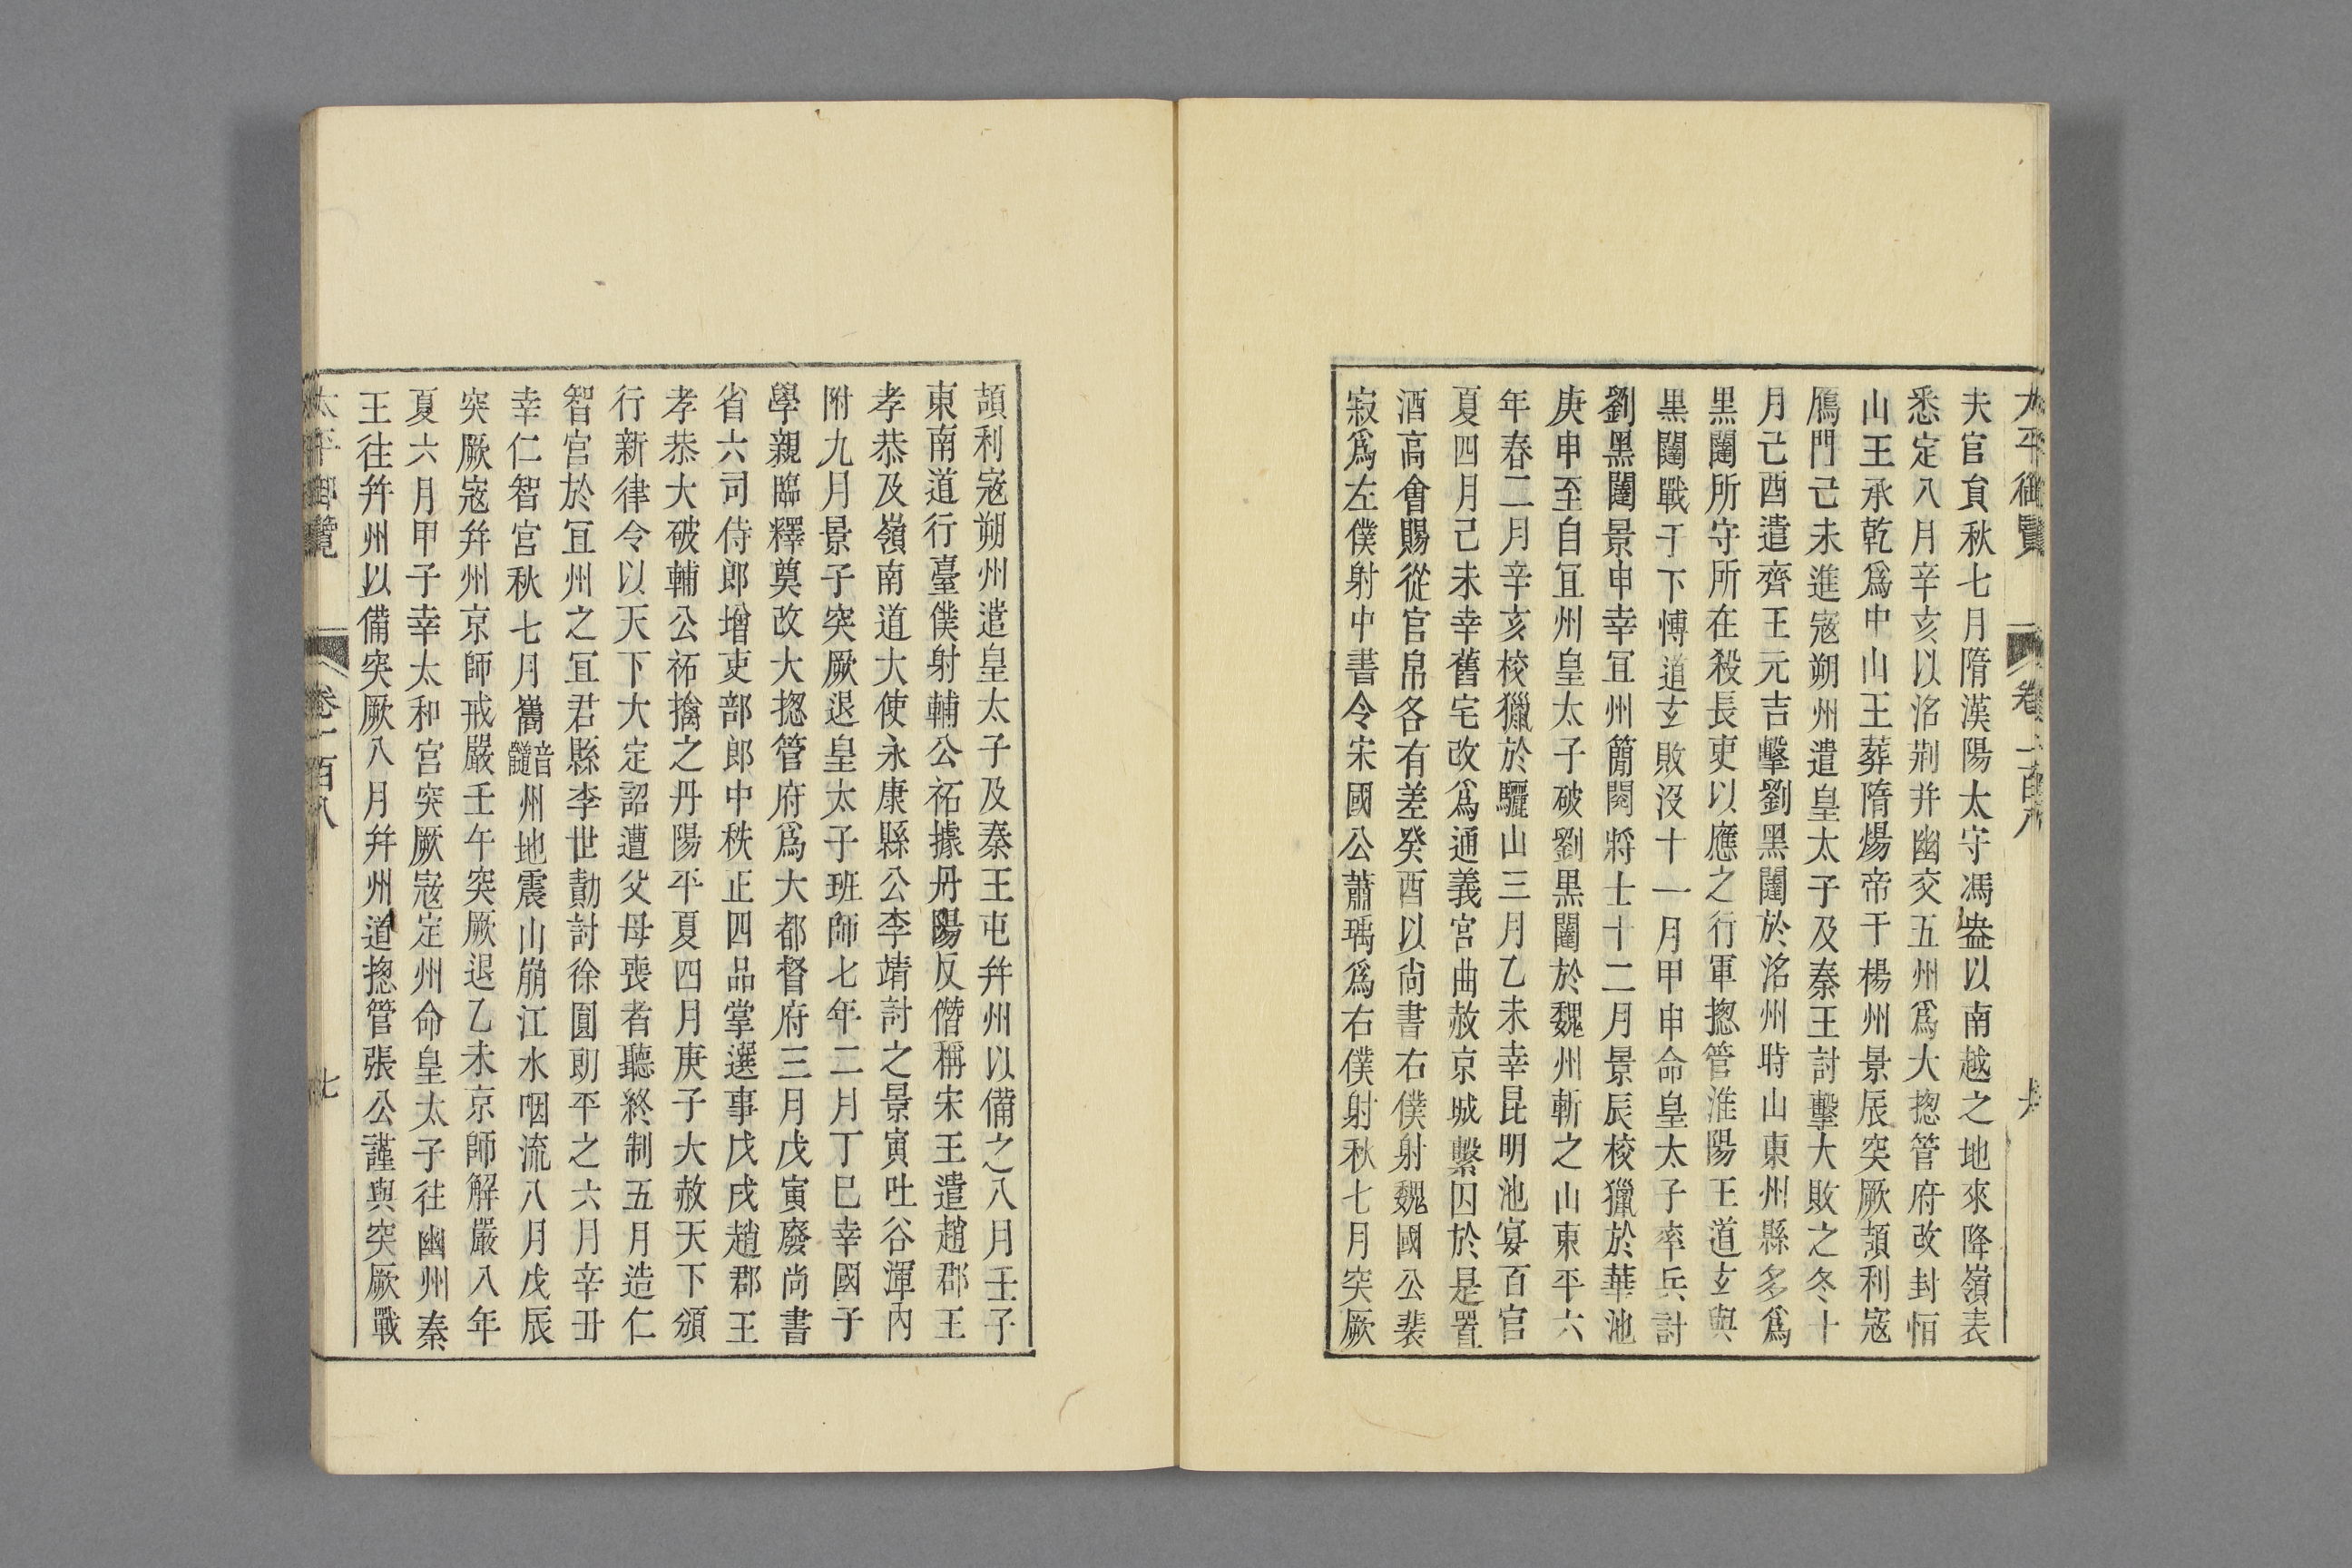 太平御覽 卷一百八
夫官員秋七月隋漢陽太守馮盎以南越之地來降嶺表
悉定八月辛亥以洺荆并幽交五州爲大揔管府改封恒
山王承乾爲中山王葬隋煬帝于楊州景辰突厥頡利寇
鴈門己未進寇朔州遣皇太子及秦王討擊大敗之冬十
月己酉遣齊王元吉擊劉黑闥於洺州時山東州縣多爲
黑闥所守所在殺長吏以應之行軍揔管淮陽王道玄與
黑闥戰于下博道玄敗沒十一月甲申命皇太子率兵討
劉黑闥景申幸冝州簡閱將士十二月景辰校獵於華池
庚申至自冝州皇太子破劉黑闥於魏州斬之山東平六
年春二月辛亥校獵於驪山三月乙未幸昆明池宴百官
夏四月己未幸舊宅改爲通義宮曲赦京城繫囚於是置
酒高會賜從官帛各有差癸酉以尚書右僕射魏國公裴
寂爲左僕射中書令宋國公蕭瑀爲右僕射秋七月突厥
頡利寇朔州遣皇太子及秦王屯幷州以備之八月壬子
東南道行臺僕射輔公祏據丹陽反僭稱宋王遣趙郡王
孝恭及嶺南道大使永康縣公李靖討之景寅吐谷渾內
附九月景子突厥退皇太子班師七年二月丁巳幸國子
學親臨釋奠改大揔管府爲大都督府三月戊寅廢尚書
省六司侍郎增吏部郎中秩正四品掌選事戊戌趙郡王
孝恭大破輔公祏擒之丹陽平夏四月庚子大赦天下頒
行新律令以天下大定詔遭父母喪者聽終制五月造仁
智宮於冝州之冝君縣李世勣討徐圓朗平之六月辛丑
幸仁智宮秋七月巂音髓州地震山崩江水咽流八月戊辰
突厥寇幷州京師戒嚴壬午突厥退乙未京師解嚴八年
夏六月甲子幸太和宮突厥寇定州命皇太子往幽州秦
王往幷州以備突厥八月幷州道揔管張公謹與突厥戰
太平御覽 卷一百八 七